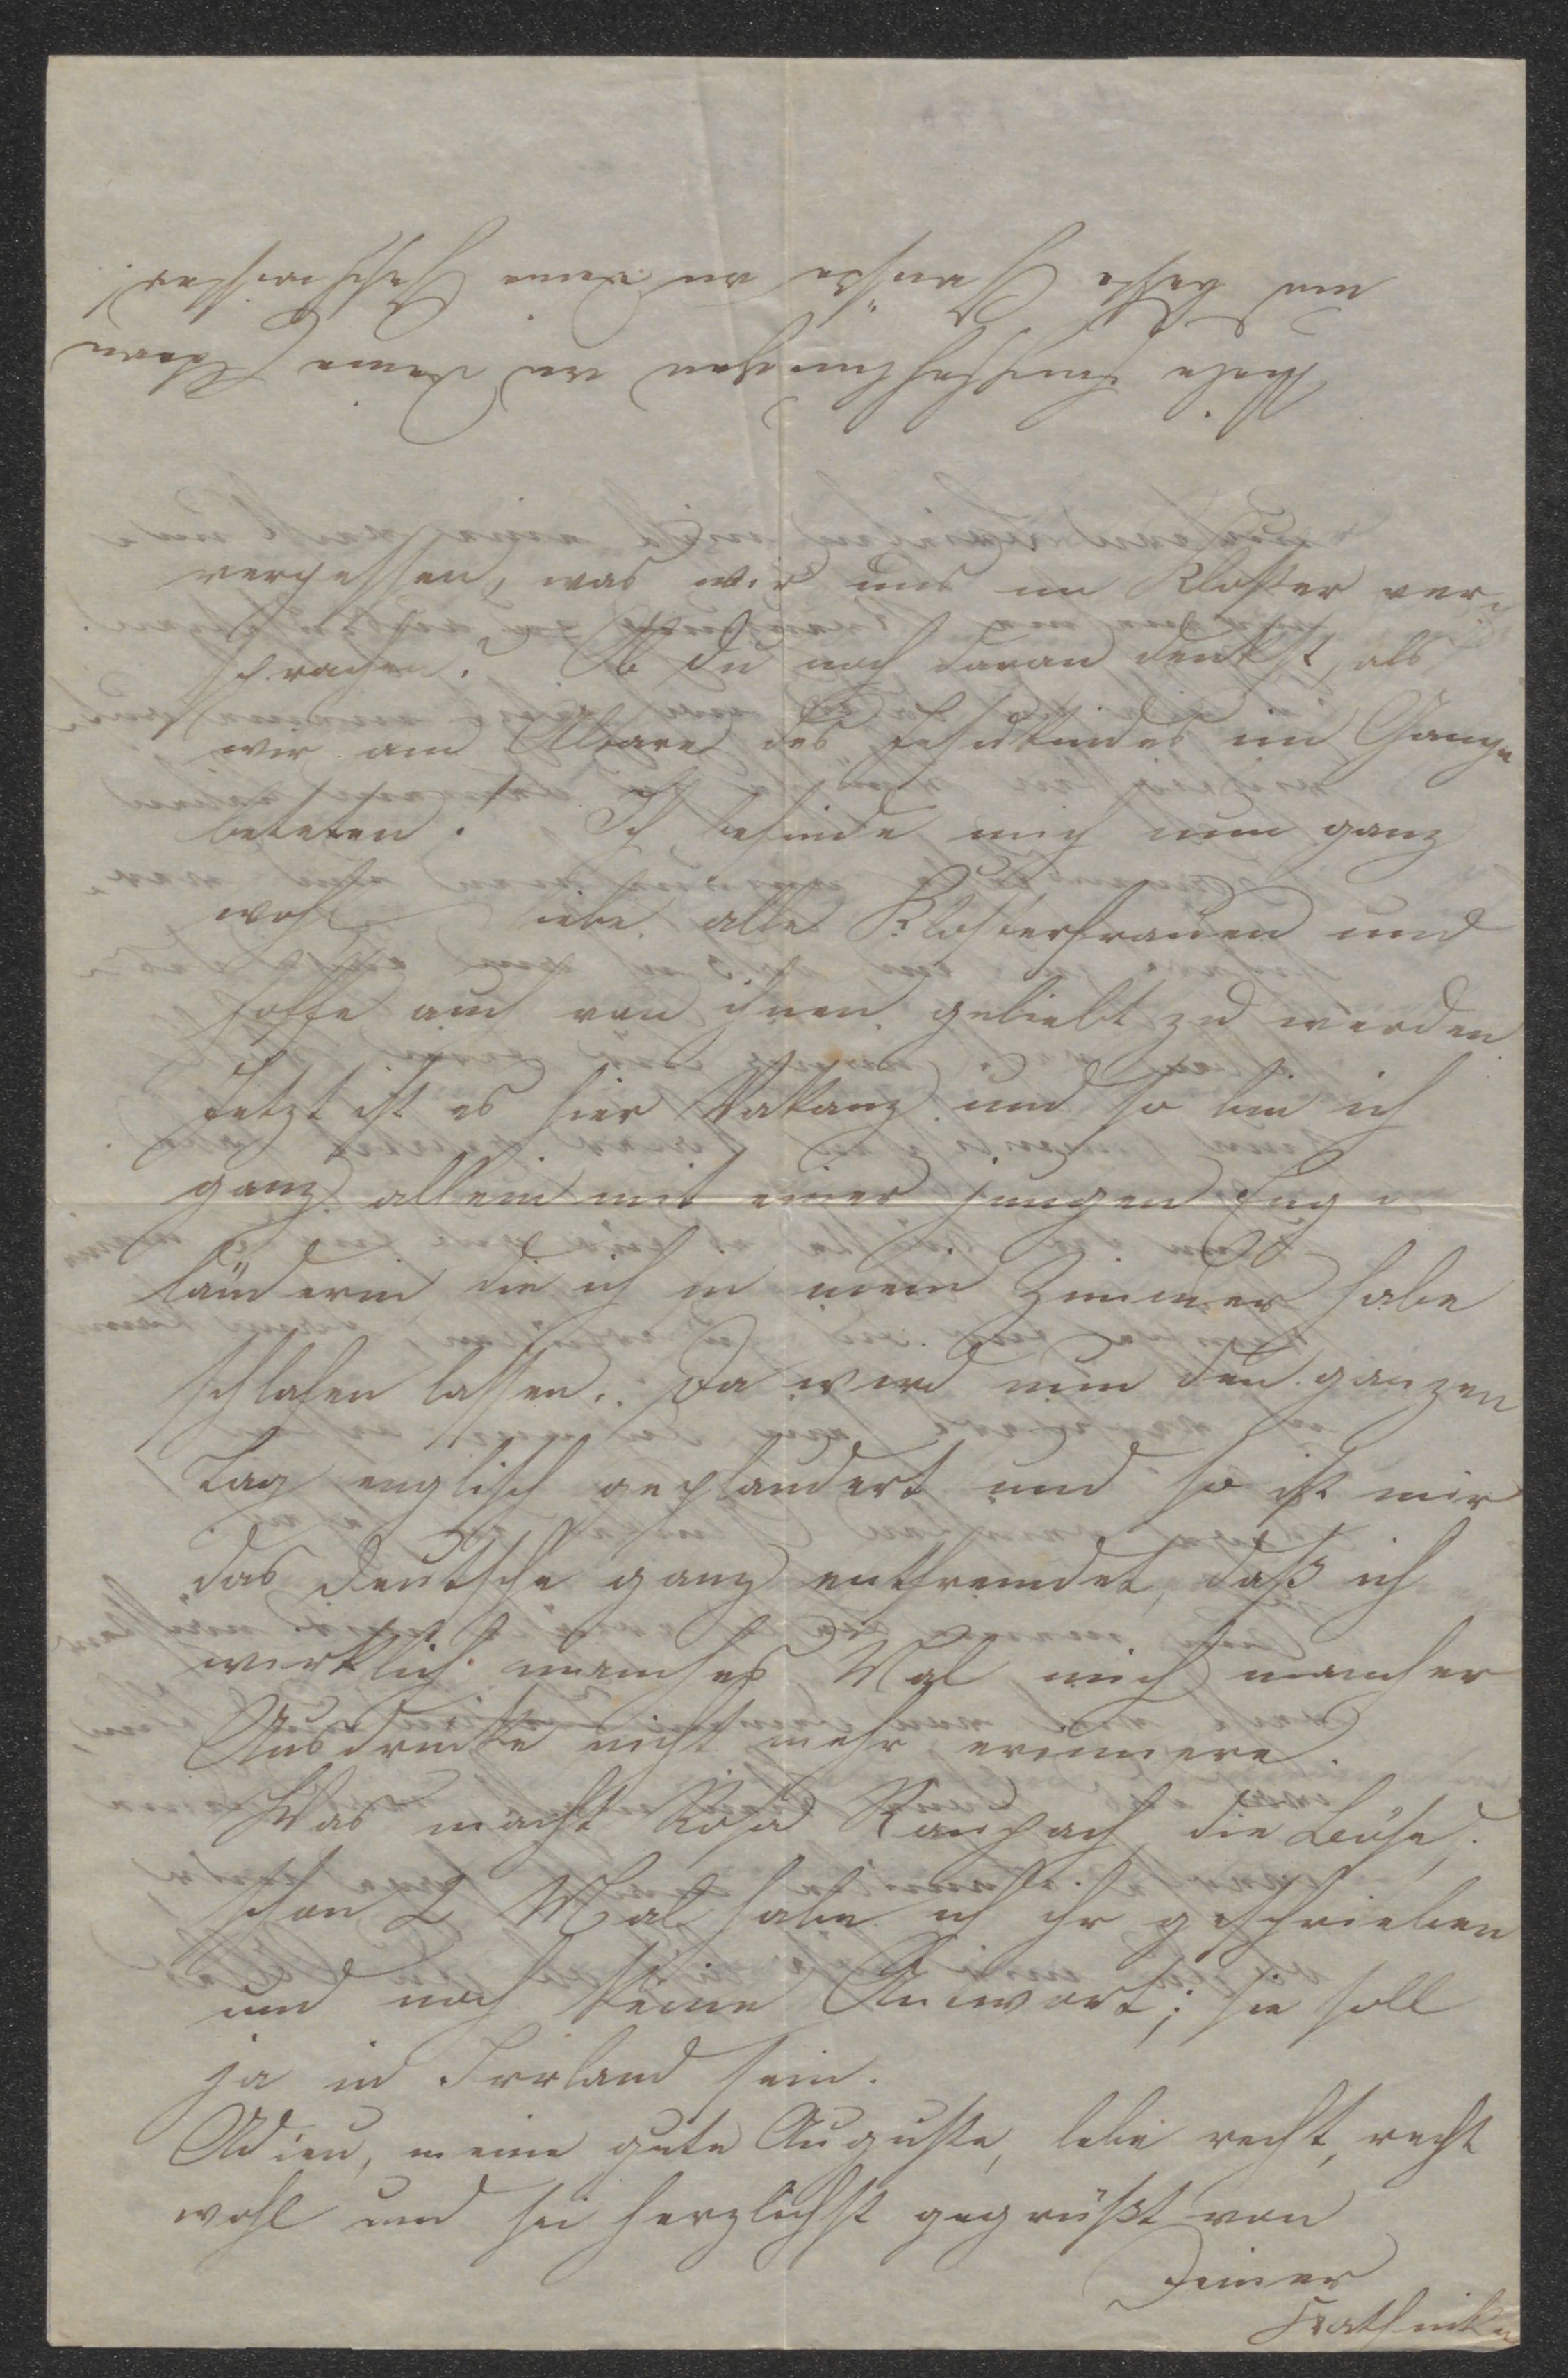 vergessen, was wir uns im Kloster ver-
sprachen? Ob Du noch daran denkst, als
wir am Altare des Jesukindes im Gange
beteten! Ich befinde mich nun ganz
wohl liebe alle Klosterfrauen und
hoffe auch von ihnen geliebt zu werden.
Jetzt ist es hier Vakanz und so bin ich
ganz allein mit einer jungen Eng-
länderin die ich in mein Zimmer habe
schlafen lassen. Da wird nun den ganzen
Tag englisch geplaudert und so ist mir
das Deutsche ganz entfremdet, daß ich
wirklich manches Mal mich mancher
Ausdrücke nicht mehr erinnere.
Was macht Rosa die Böse,
schon 2 Mal habe ich ihr geschrieben
und noch keine Antwort; sie soll
ja in Irrland sein.
Adieu, meine gute Auguste, lebe recht, recht
wohl und sei herzlichst gegrüßt von
Deiner
Meine an Deine Eltern
und beste Grüße an Deine Geschwister.